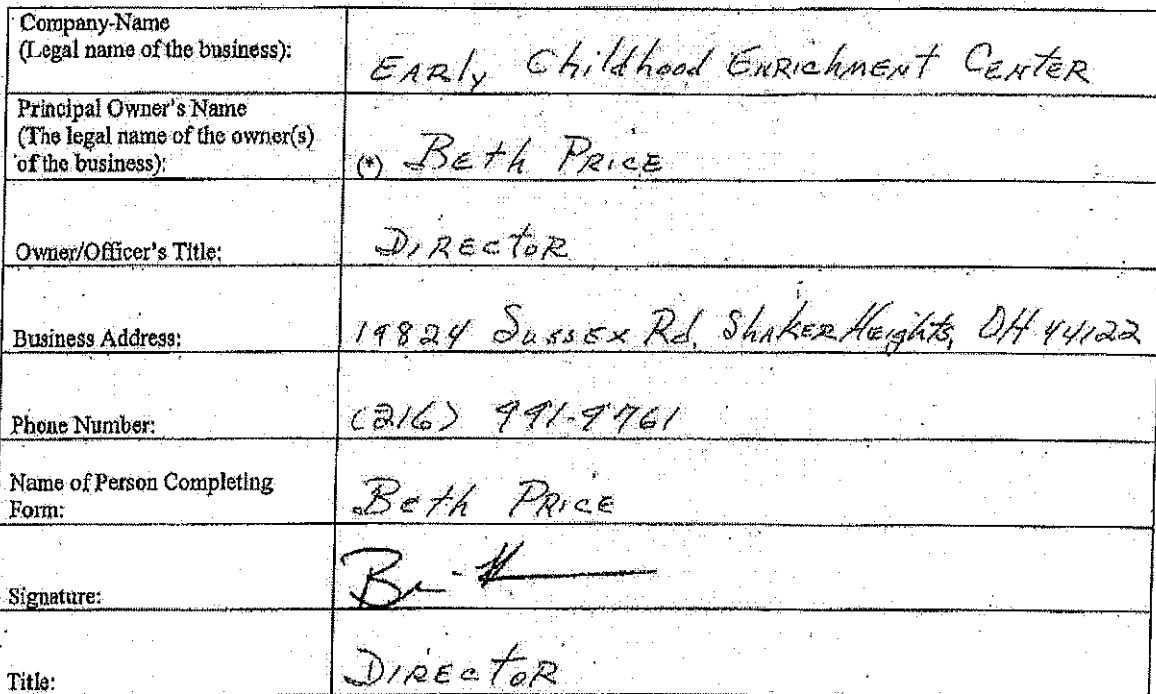 Company-Name
(Legal name of the business):
EARly Childhood ENRichmENT CENTER
Principal Owner's Name
(The legal name of the owner(s)
of the business):
(*) Beth PRice
Owner/Officer's Title:
DIRECtoR
Business Address:
19824 SussEx Rd. ShakER Heights, OH 44122
Phone Number:
(216) 991-9761
Name of Person Completing
Form:
Beth PRice
Signature:
Title:
DIRECtoR